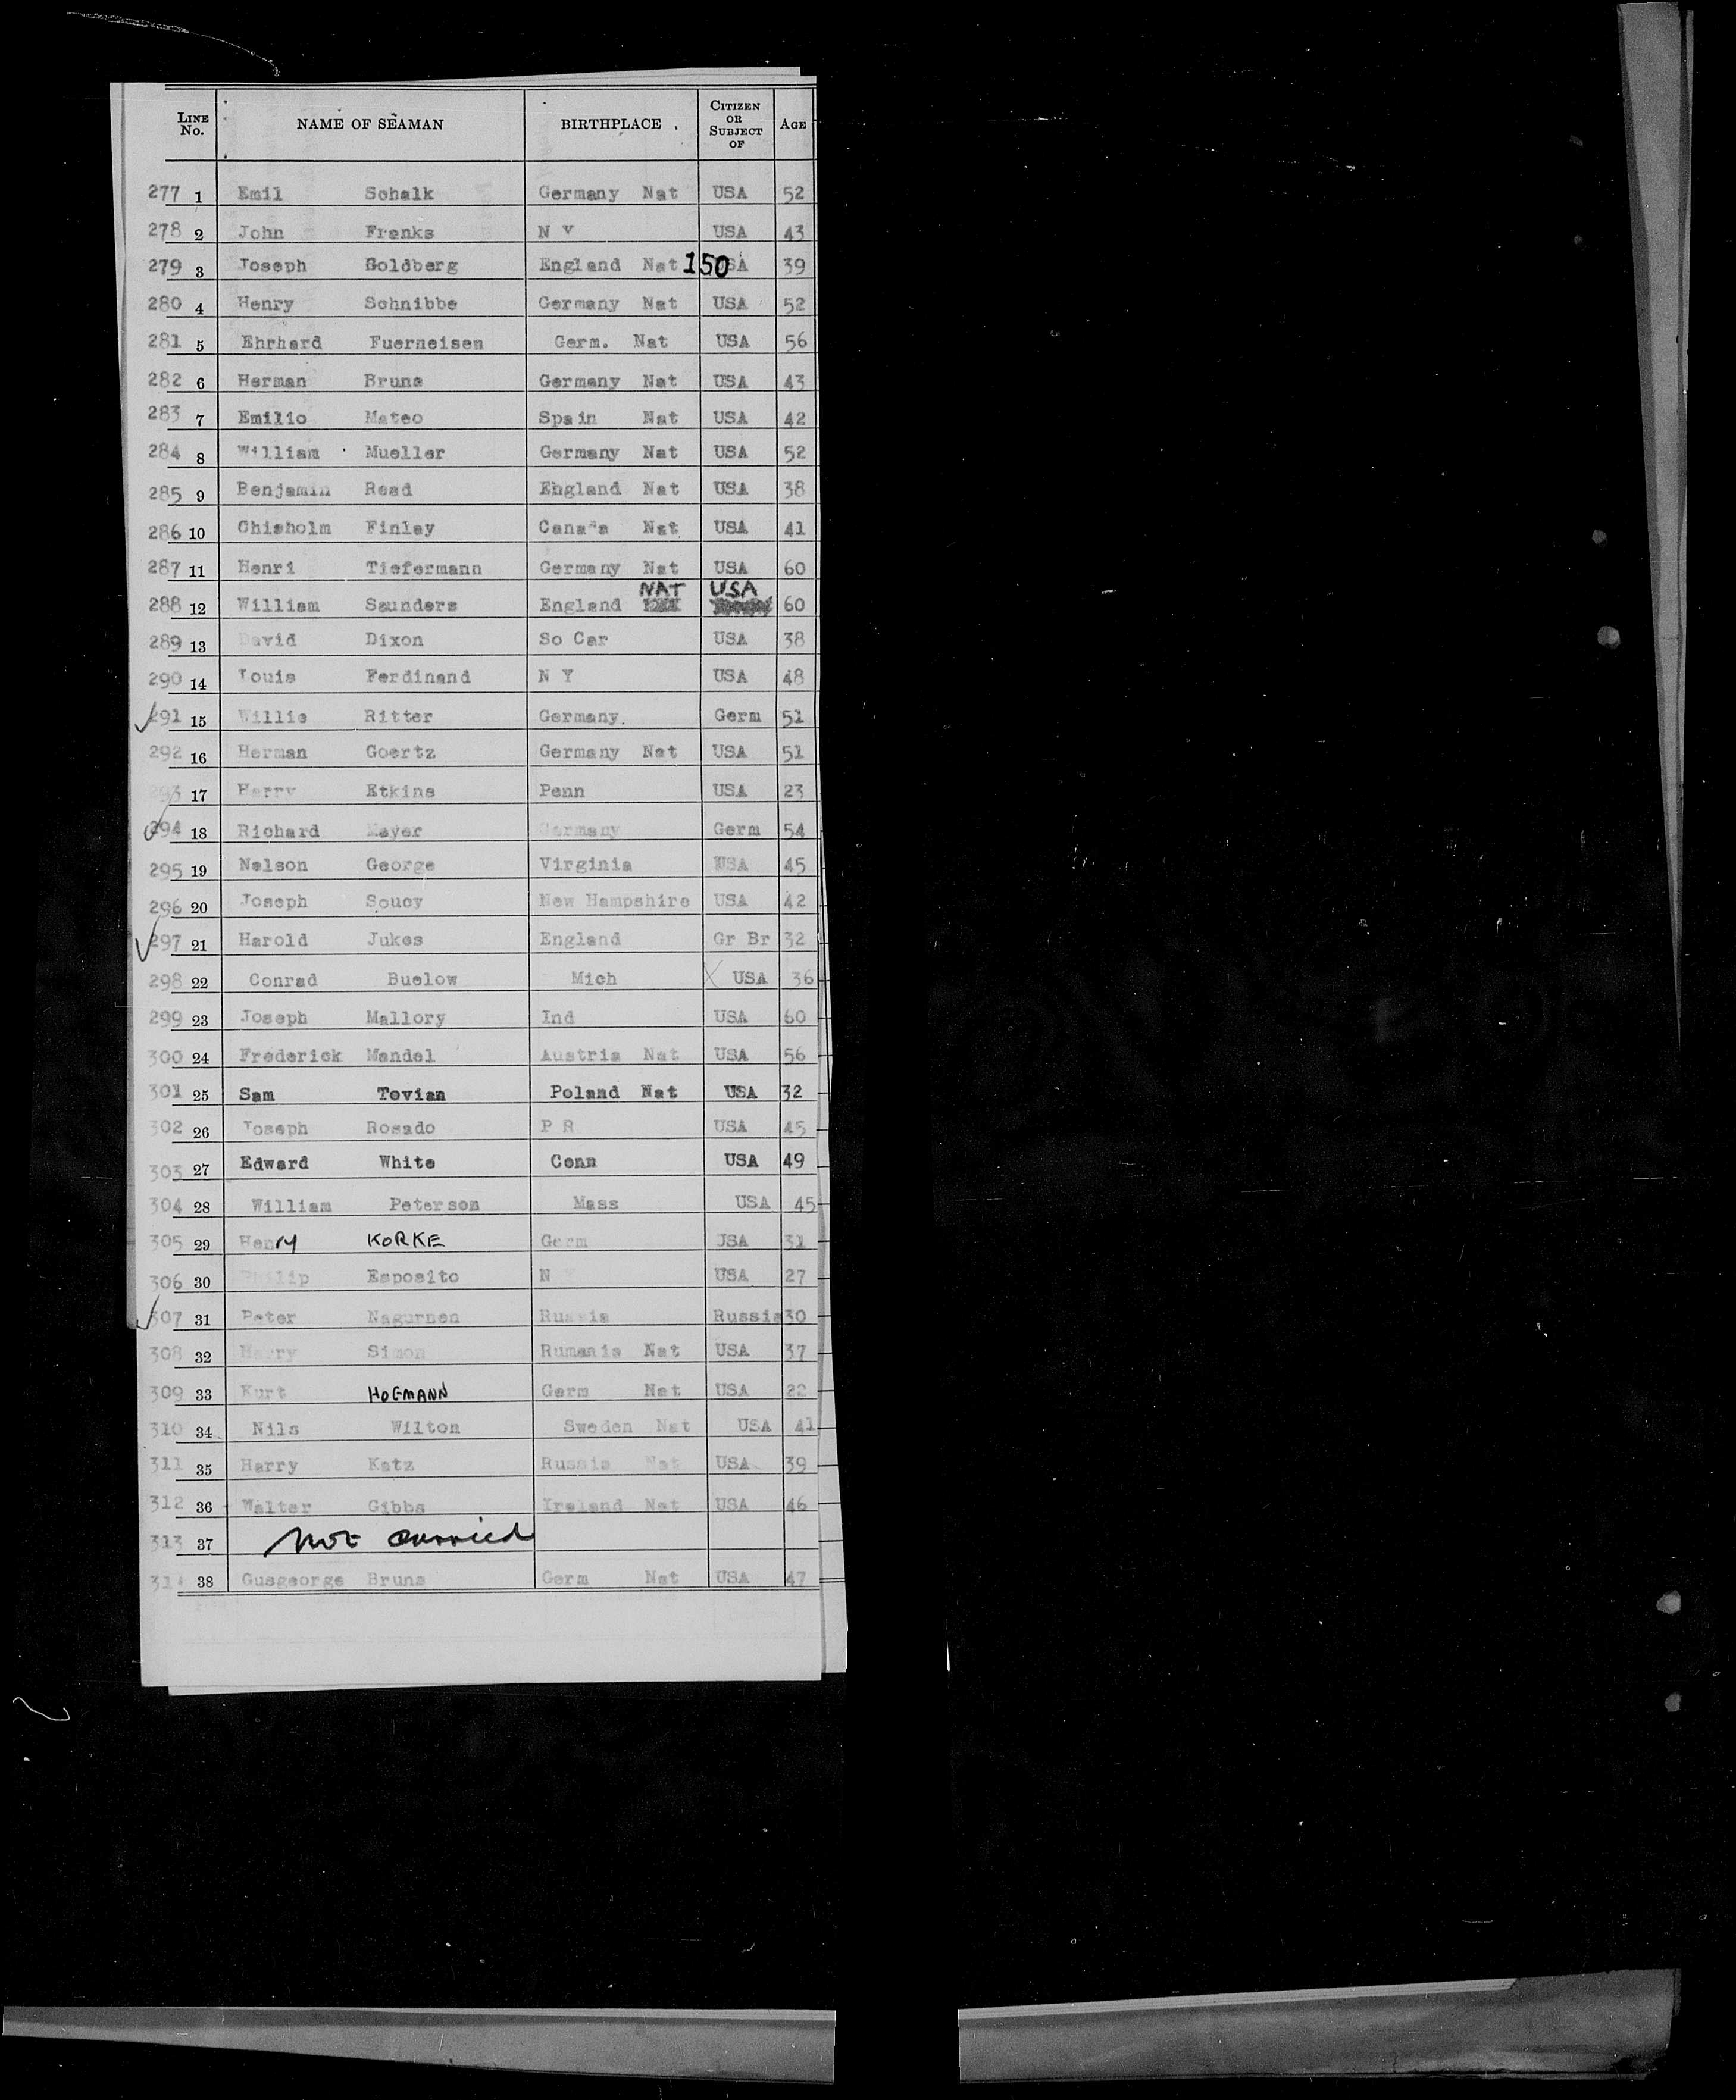 LINE No. NAME OF SEAMAN BIRTHPLACE CITIZEN OR SUBJECT OF AGE
277 1 Emil Schalk Germany Nat USA 52
278 2 John Franks N Y USA 43
279 3 Joseph Goldberg England Nat 150 USA 39
280 4 Henry Schnibbe Germany Nat USA 52
281 5 Ehrhard Fuerneisen Germ. Nat USA 56
282 6 Herman Bruns Germany Nat USA 43
283 7 Emilio Mateo Spain Nat USA 42
284 8 William Mueller Germany Nat USA 52
285 9 Benjamin Read England Nat USA 38
286 10 Chisholm Finlay Canada Nat USA 41
287 11 Henri Tiefermann Germany Nat USA 60
288 12 William Saunders England NAT USA 60
289 13 David Dixon So Car USA 38
290 14 Louis Ferdinand N Y USA 48
291 15 Willie Ritter Germany. Germ 51
292 16 Herman Goertz Germany Nat USA 51
293 17 Harry Etkins Penn USA 23
294 18 Richard Mayer Germany Germ 54
295 19 Nelson George Virginia USA 45
296 20 Joseph Soucy New Hampshire USA 42
297 21 Harold Jukes England Gr Br 32
298 22 Conrad Buelow Mich X USA 36
299 23 Joseph Mallory Ind USA 60
300 24 Frederick Mandel Austria Nat USA 56
301 25 Sam Tovian Poland Nat USA 32
302 26 Joseph Rosado P R USA 45
303 27 Edward White Conn USA 49
304 28 William Peterson Mass USA 45
305 29 Henry KORKE Germ USA 31
306 30 Philip Esposito N Y USA 27
307 31 Peter Nagurnen Russia Russia 30
308 32 Harry Simon Rumania Nat USA 37
309 33 Kurt HOFMANN Germ Nat USA 22
310 34 Nils Wilton Sweden Nat USA 41
311 35 Harry Katz Russia Nat USA 39
312 36 Walter Gibbs Ireland Nat USA 46
313 37 Not carried
314 38 Gusgeorge Bruns Germ Nat USA 47